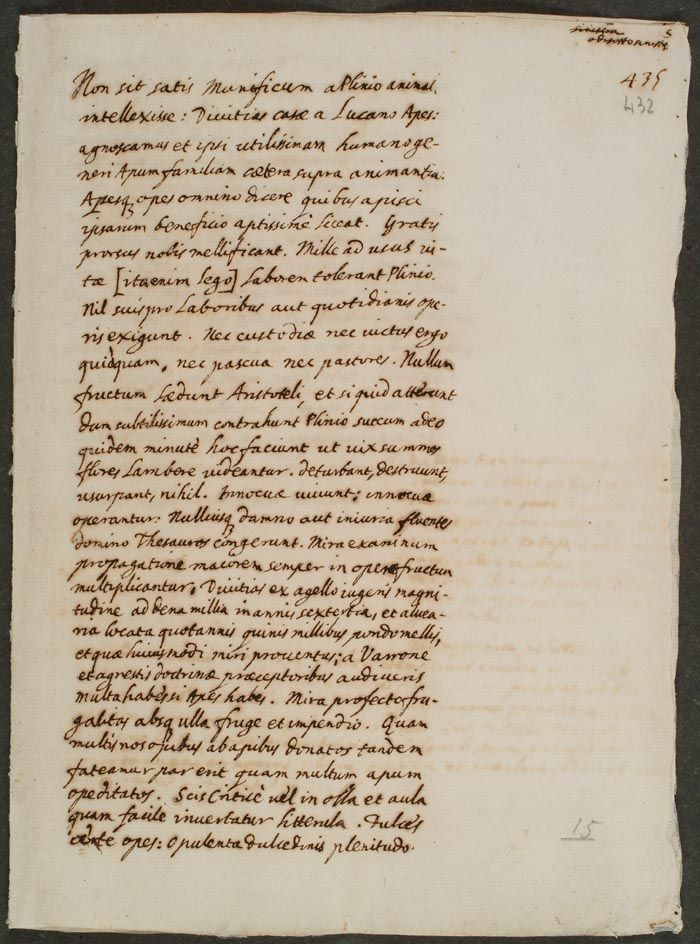 sinistra
o di sotto
5
435
432
Non sit satis Munificum a Plinio animal
intellexisse: Divitias casæ a Lucano Apes:
agnoscamus et ipsi utilissimam humano ge-
neri Apum familiam cætera supra animantia.
Apesq opes omnino dicere quibus apisci
ipsarum beneficio aptissimè liceat. Gratis
prorsus nobis mellificant. Mille ad usus vi-
tæ [ita enim lego] Laborem tolerant Plinio.
Nil suis pro Laboribus aut quotidianis ope-
ris exigunt. Nec custodiæ nec victus ergo
quidquam, nec pascua nec pastores. Nullum
fructum Lædunt Aristoteli, et si quid atterunt
dum subtilissimum contrahunt Plinio succum adeo
quidem minutè hoc faciunt ut vix summos
flores Lambere videantur. deturbant, destruunt,
usurpant, nihil. Innocuæ vivunt: innocuæ
operantur: Nulliusq damno aut iniuria fluentes
domino Thesauros congerunt. Mira examinum
propagatione maiorem semper in opere fructum
multiplicantur. Divitias ex agello iugeris magni-
tudine ad dena millia in annis sextertia, et alvea-
ria locata quotannis quinis millibus pondo mellis,
et quæ huiusmodi miri proventus; a Varrone
et agrestis doctrinæ præceptoribus audiveris
multa habes si Apes habes. Mira profecto fru-
galitas absq ulla fruge et impendio. Quam
multis nos opibus ab apibus donatos tandem
fateamur par erit quam multum apum
opeditatos. Scis Criticè vel in olla et aula
quam facile invertatur litterula. Dulces
opes: Opulenta dulcedinis plenitudo.
15